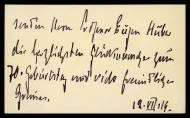 senden Herrn Professor Eugen Huber
die herzlichsten Glückwünsche zum
70. Geburtstag und viele freundliche
Grüsse.
12. VII. 19.